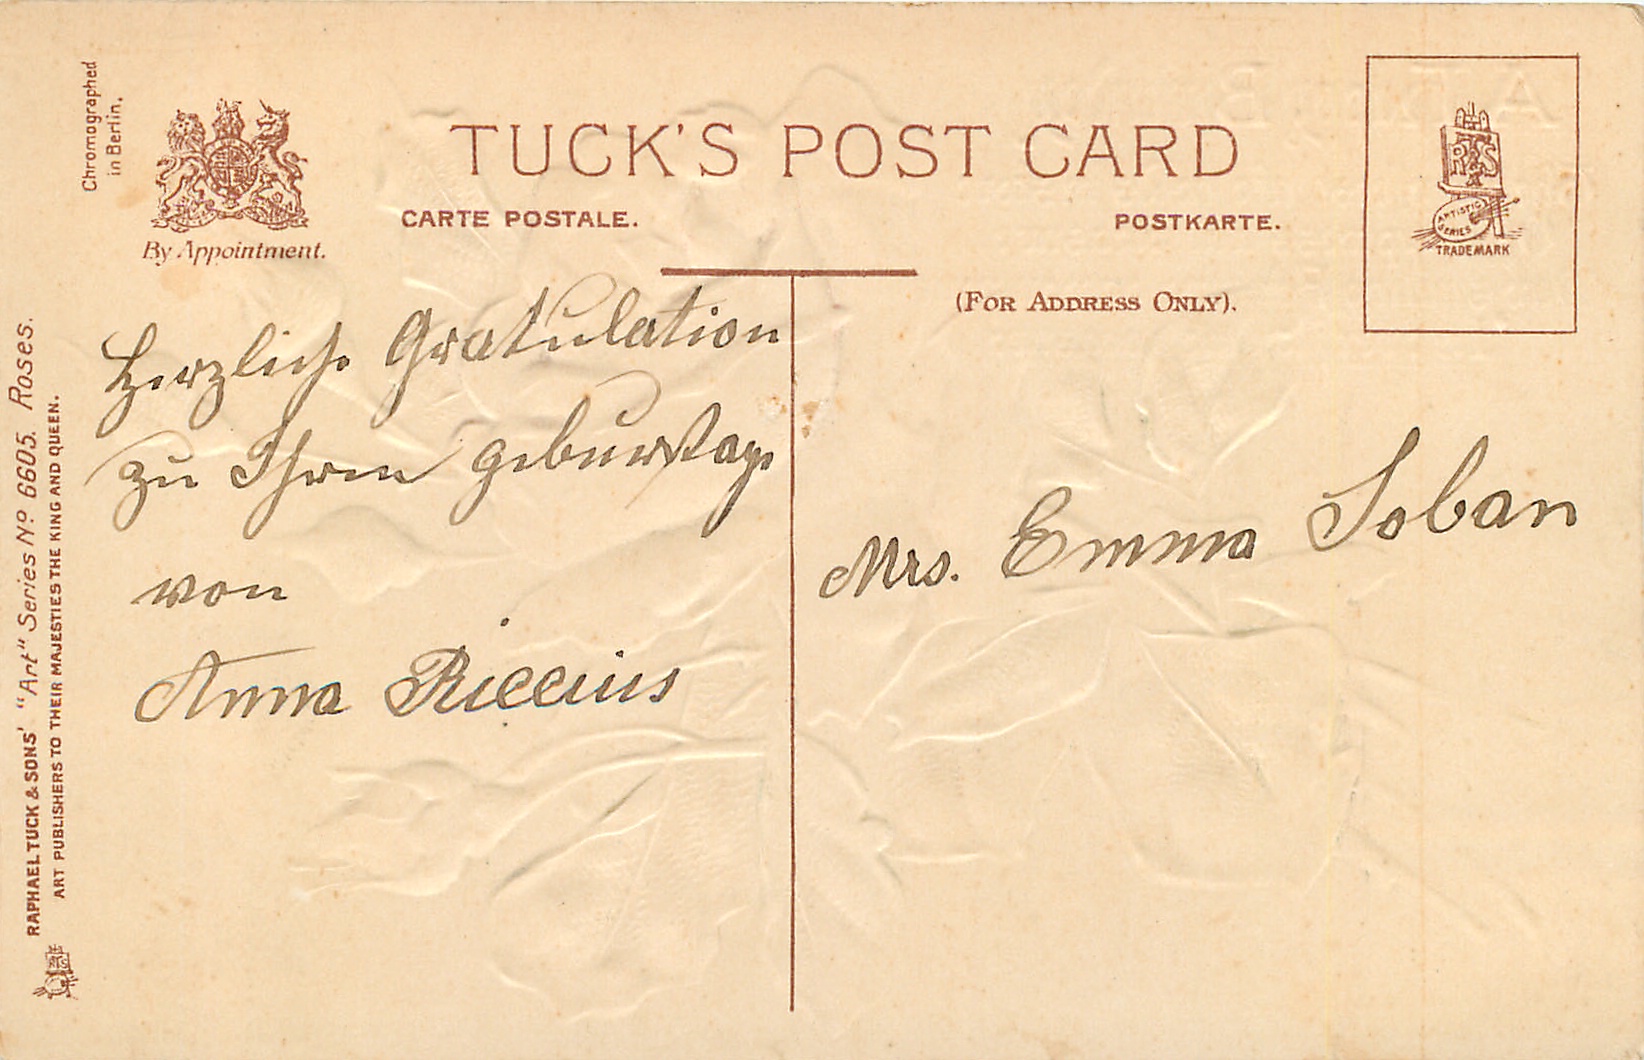 Chromographed
in Berlin.
By Appointment.
TUCK'S POST CARD
CARTE POSTALE.
POSTKARTE.
(FOR ADDRESS ONLY).
RTS
ARTISTIC
SERIES
TRADEMARK
RAPHAEL TUCK & SONS' "Art" Series Nº 6605. Roses.
ART PUBLISHERS TO THEIR MAJESTIES THE KING AND QUEEN.
Herzliche Gratulation
zu Ihrem geburtstage
von
Anna Riccius
Mrs. Emma Soban